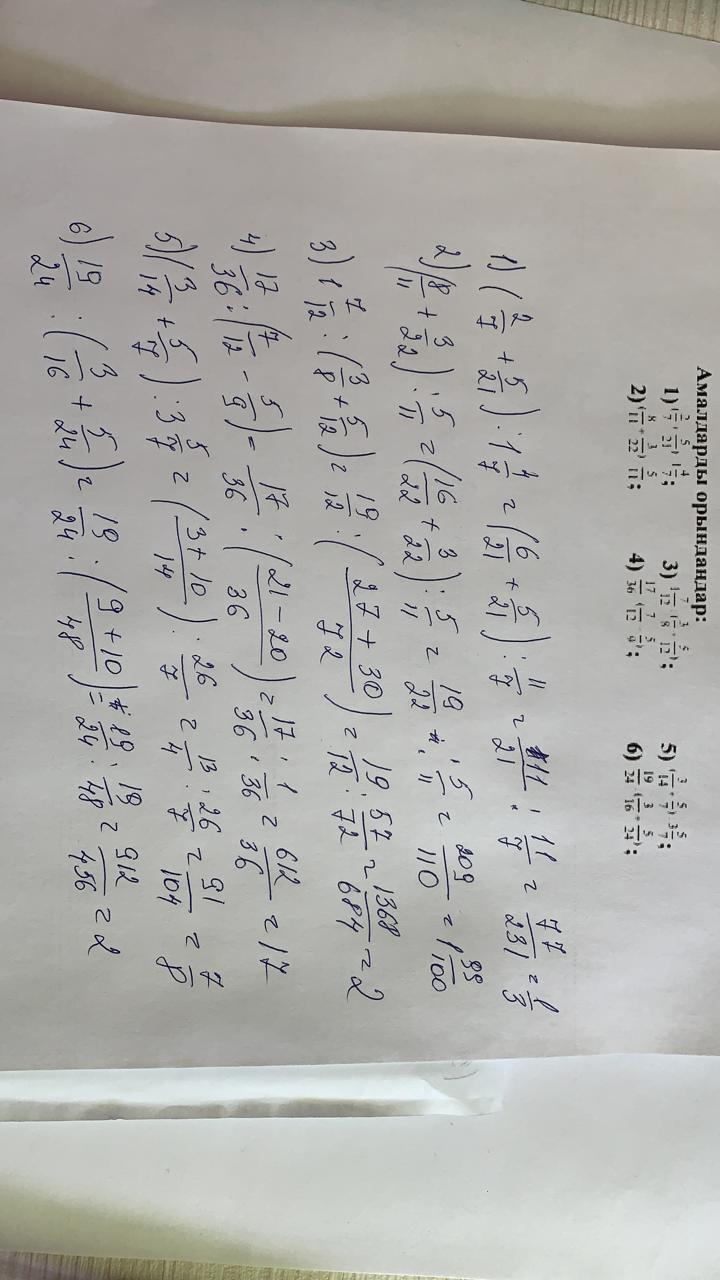 Амалдарды орындаңдар:
1) (2/7 + 5/21) : 1 4/7; 3) 1 7/12 : (3/8 + 5/12); 5) (3/14 + 5/7) : 3 5/7;
2) (8/11 + 3/22) : 5/11; 4) 17/36 : (7/12 - 5/9); 6) 19/24 : (3/16 + 5/24);
1) (2/7 + 5/21) : 1 4/7 = (6/21 + 5/21) : 11/7 = 11/21 : 11/7 = 77/231 = 1/3
2) (8/11 + 3/22) : 5/11 = (16/22 + 3/22) : 5/11 = 19/22 : 5/11 = 209/110 = 1 99/100
3) 1 7/12 : (3/8 + 5/12) = 19/12 : (27 + 30/72) = 19/12 : 57/72 = 1368/684 = 2
4) 17/36 : (7/12 - 5/9) = 17/36 : (21 - 20/36) = 17/36 : 1/36 = 612/36 = 17
5) (3/14 + 5/7) : 3 5/7 = (3 + 10/14) : 26/7 = 13/4 : 26/7 = 91/104 = 7/8
6) 19/24 : (3/16 + 5/24) = 19/24 : (9 + 10/48) = 19/24 : 19/48 = 912/456 = 2